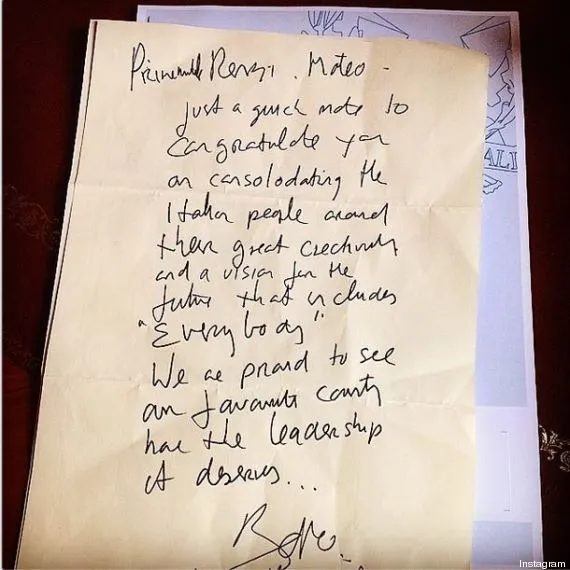 Renzi. Mateo -
Just a quick note to
congratulate you
on consolodating the
Italian people around
their great
and a vision for the
future that includes
"Everybody"
We are proud to see
our favourite country
have the leadership
it deserves...
Bono.
ALI
Instagram